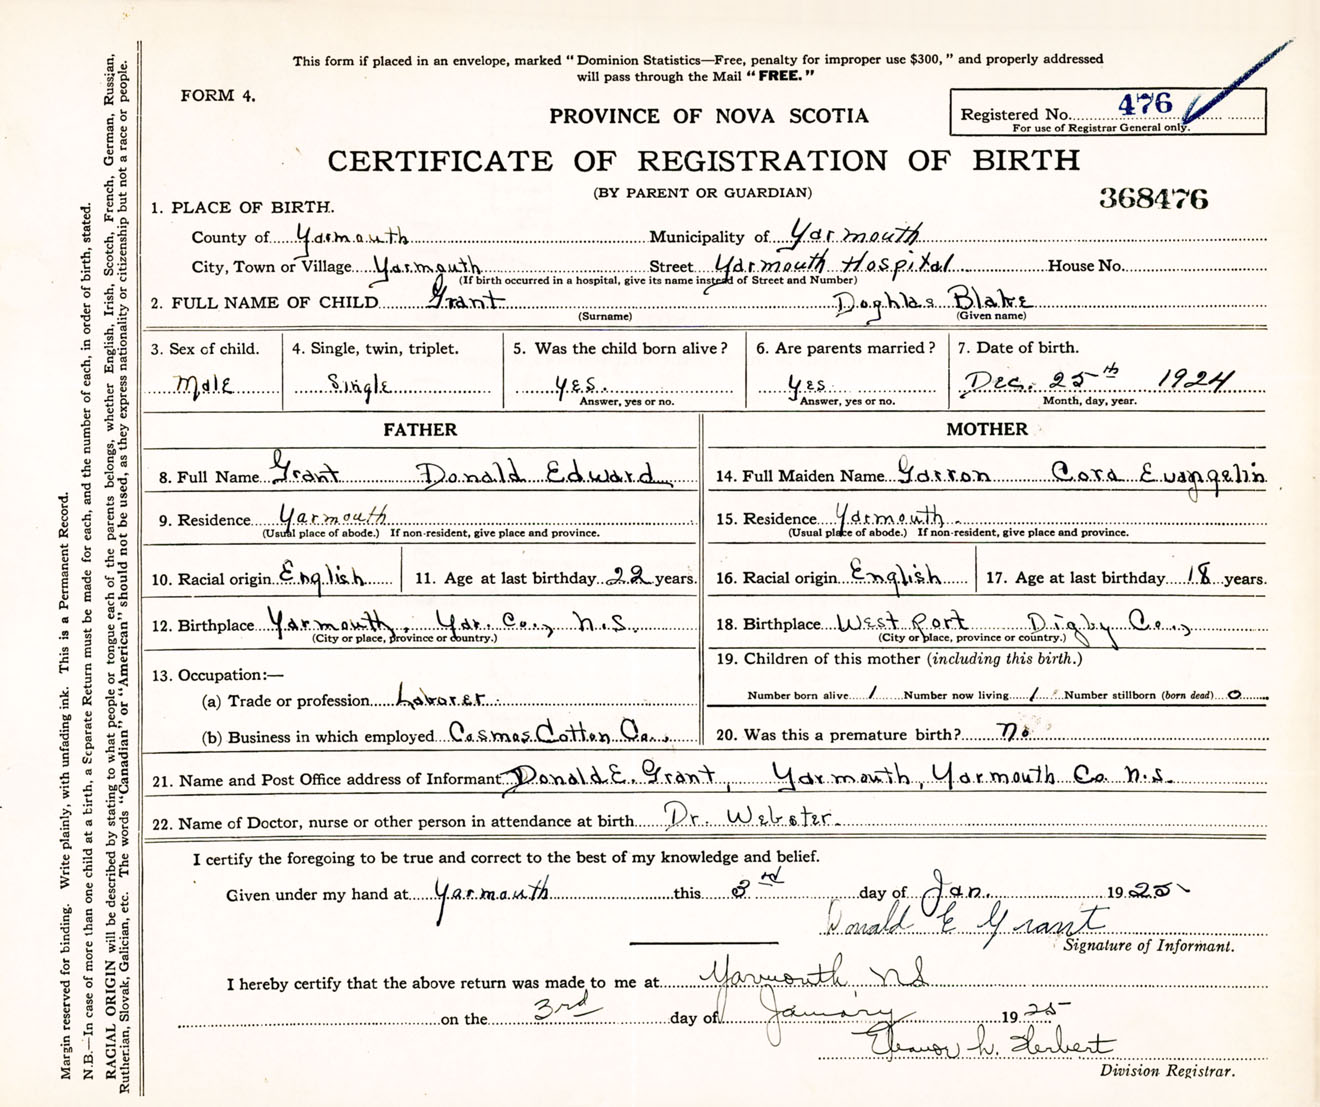 This form if placed in an envelope, marked "Dominion Statistics—Free, penalty for improper use $300," and properly addressed
will pass through the Mail "FREE."
FORM 4.
PROVINCE OF NOVA SCOTIA
Registered No. 476
For use of Registrar General only.
CERTIFICATE OF REGISTRATION OF BIRTH
(BY PARENT OR GUARDIAN)
368476
1. PLACE OF BIRTH.
County of Yarmouth Municipality of Yarmouth
City, Town or Village Yarmouth Street Yarmouth Hospital House No.
(If birth occurred in a hospital, give its name instead of Street and Number)
2. FULL NAME OF CHILD Grant Doghlas Blake
(Surname) (Given name)
3. Sex of child. 4. Single, twin, triplet. 5. Was the child born alive? 6. Are parents married? 7. Date of birth.
Male Single yes. yes Dec. 25th 1924
Answer, yes or no. Answer, yes or no. Month, day, year.
FATHER MOTHER
8. Full Name Grant Donald Edward 14. Full Maiden Name Garron Cora Evangelin
9. Residence Yarmouth 15. Residence Yarmouth
(Usual place of abode.) If non-resident, give place and province. (Usual place of abode.) If non-resident, give place and province.
10. Racial origin English 11. Age at last birthday 22 years. 16. Racial origin English 17. Age at last birthday 18 years.
12. Birthplace Yarmouth, Yar. Co., N.S. 18. Birthplace West Port Digby Co.,
(City or place, province or country.) (City or place, province or country.)
13. Occupation:— 19. Children of this mother (including this birth.)
(a) Trade or profession Laborer Number born alive 1 Number now living 1 Number stillborn (born dead) 0
(b) Business in which employed Cosmos Cotton Co., 20. Was this a premature birth? No
21. Name and Post Office address of Informant Donald E. Grant, Yarmouth, Yarmouth Co. N.S.
22. Name of Doctor, nurse or other person in attendance at birth Dr. Webster.
I certify the foregoing to be true and correct to the best of my knowledge and belief.
Given under my hand at Yarmouth this 3rd day of Jan. 1925
Donald E Grant
Signature of Informant.
I hereby certify that the above return was made to me at Yarmouth NS
on the 3rd day of January 1925
Eleanor L. Herbert
Division Registrar.
Margin reserved for binding. Write plainly, with unfading ink. This is a Permanent Record.
N.B.—In case of more than one child at a birth, a Separate Return must be made for each, and the number of each, in order of birth, stated.
RACIAL ORIGIN will be described by stating to what people or tongue each of the parents belongs, whether English, Irish, Scotch, French, German, Russian,
Ruthenian, Slovak, Galician, etc. The words "Canadian" or "American" should not be used, as they express nationality or citizenship but not a race or people.